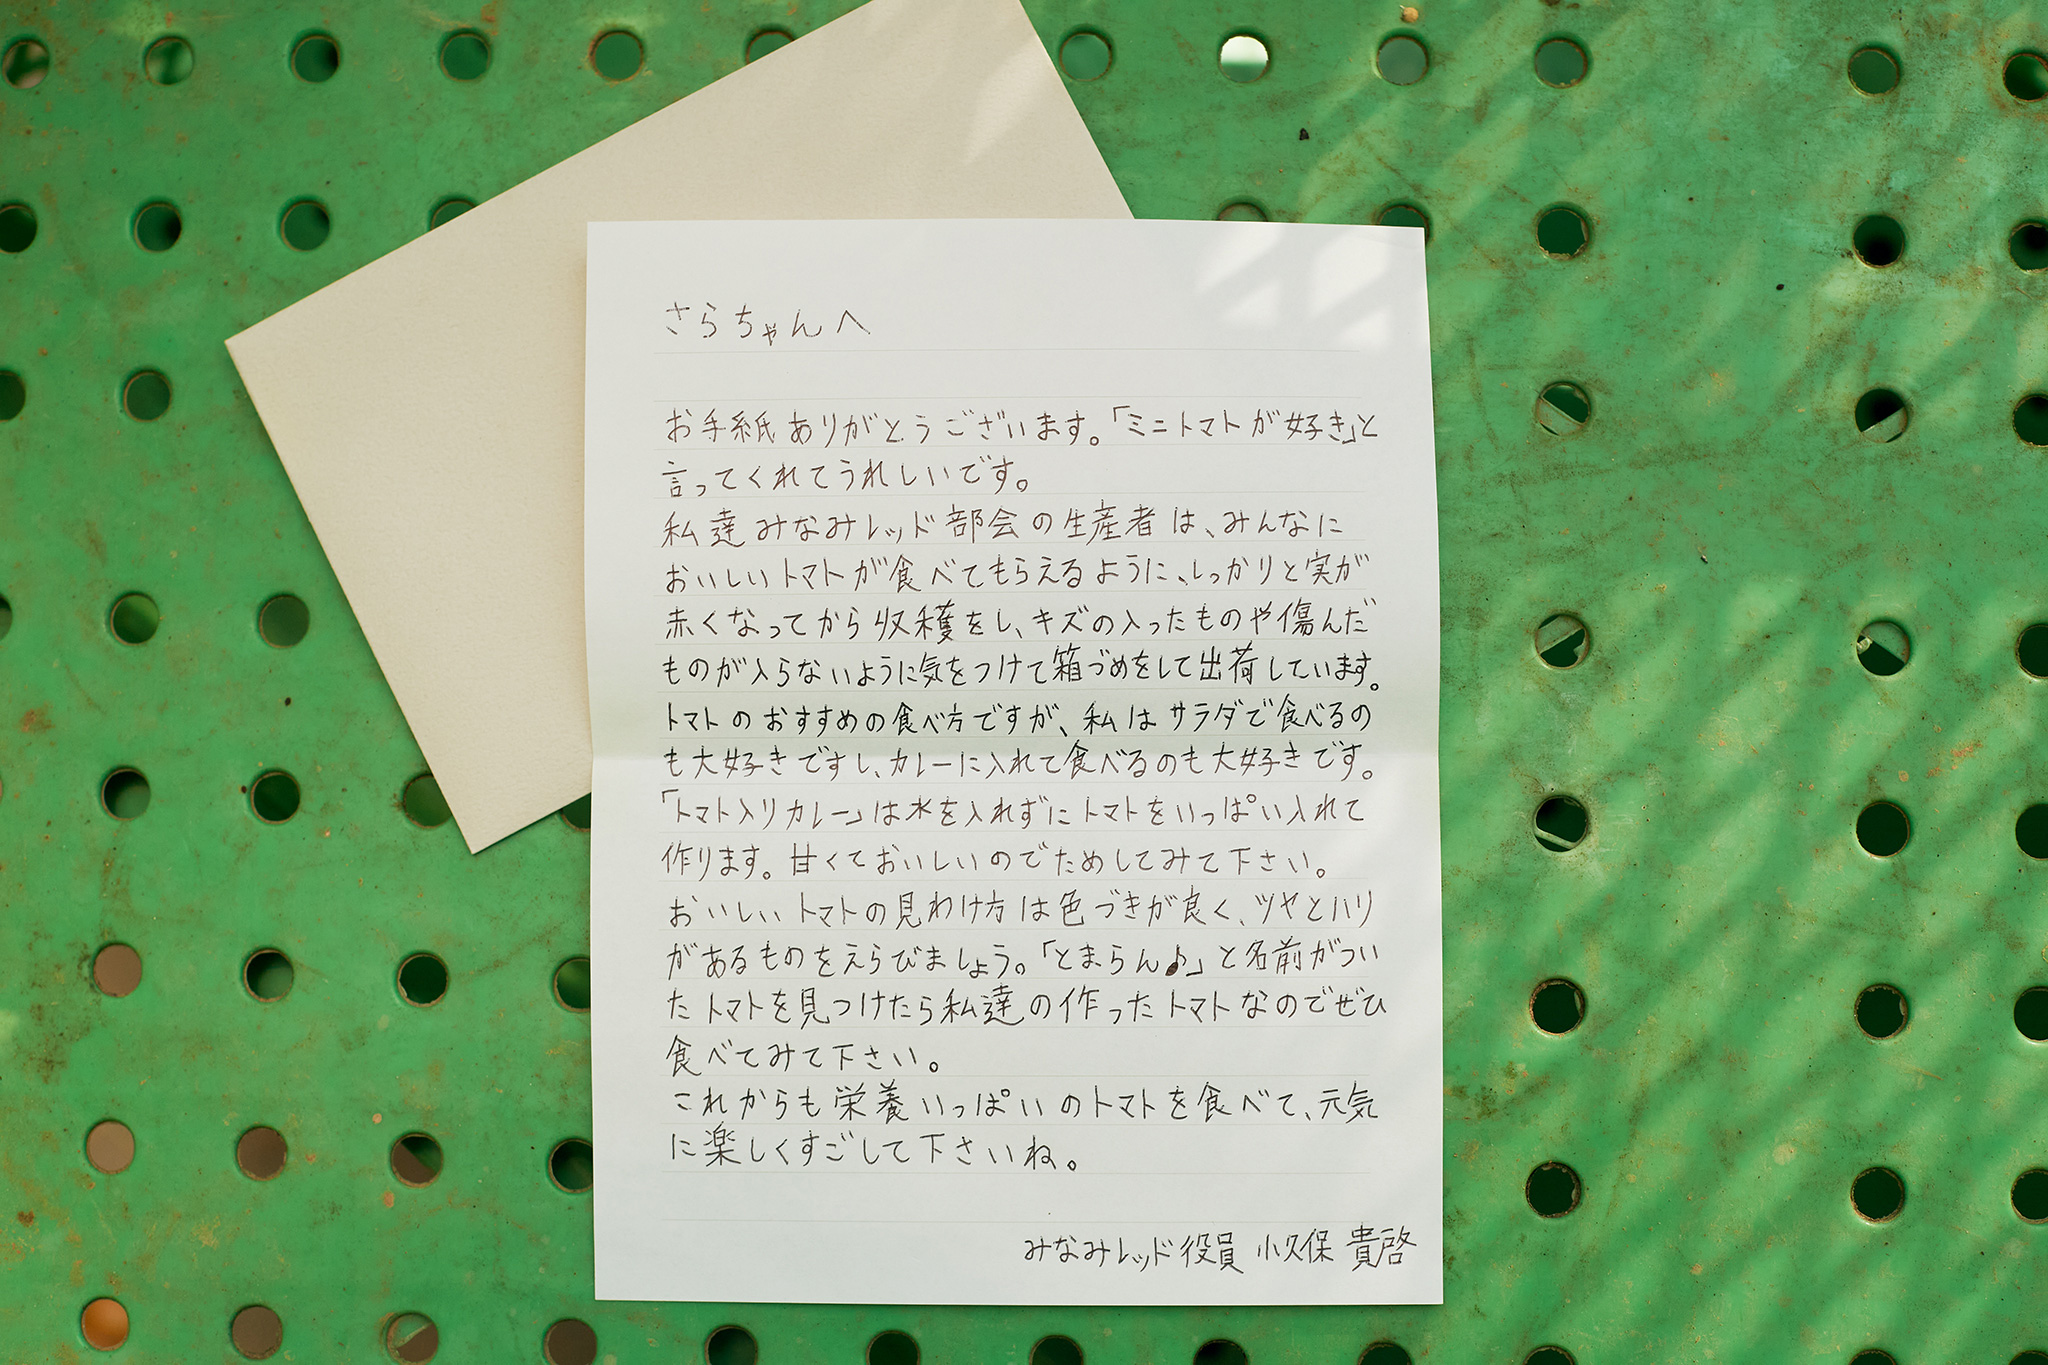 さらちゃんへ
お手紙ありがとうございます。「ミニトマトが好き」と
言ってくれてうれしいです。
私達みなみレッド部会の生産者は、みんなに
おいしいトマトが食べてもらえるように、しっかりと実が
赤くなってから収穫をし、キズの入ったものや傷んだ
ものが入らないように気をつけて箱づめをして出荷しています。
トマトのおすすめの食べ方ですが、私はサラダで食べるの
も大好きですし、カレーに入れて食べるのも大好きです。
「トマト入りカレー」は水を入れずにトマトをいっぱい入れて
作ります。甘くておいしいのでためしてみて下さい。
おいしいトマトの見わけ方は色づきが良く、ツヤとハリ
があるものをえらびましょう。「とまらん♪」と名前がつい
たトマトを見つけたら私達の作ったトマトなのでぜひ
食べてみて下さい。
これからも栄養いっぱいのトマトを食べて、元気
に楽しくすごして下さいね。
みなみレッド役員 小久保 貴啓